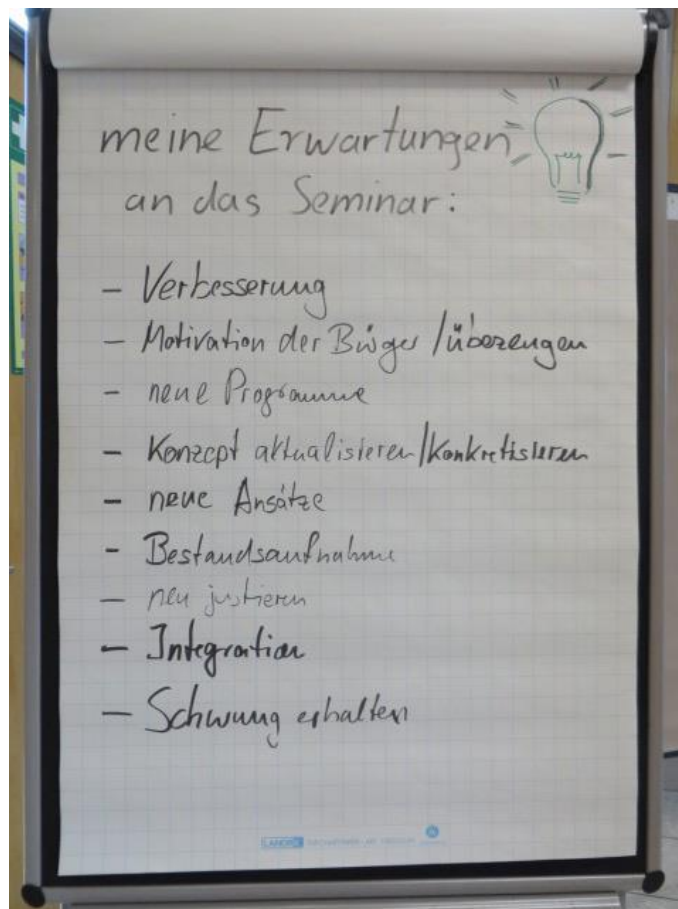 meine Erwartungen
an das Seminar:
- Verbesserung
- Motivation der Bürger / überzeugen
- neue Programme
- Konzept aktualisieren/konkretisieren
- neue Ansätze
- Bestandsaufnahme
- neu justieren
- Integration
- Schwung erhalten